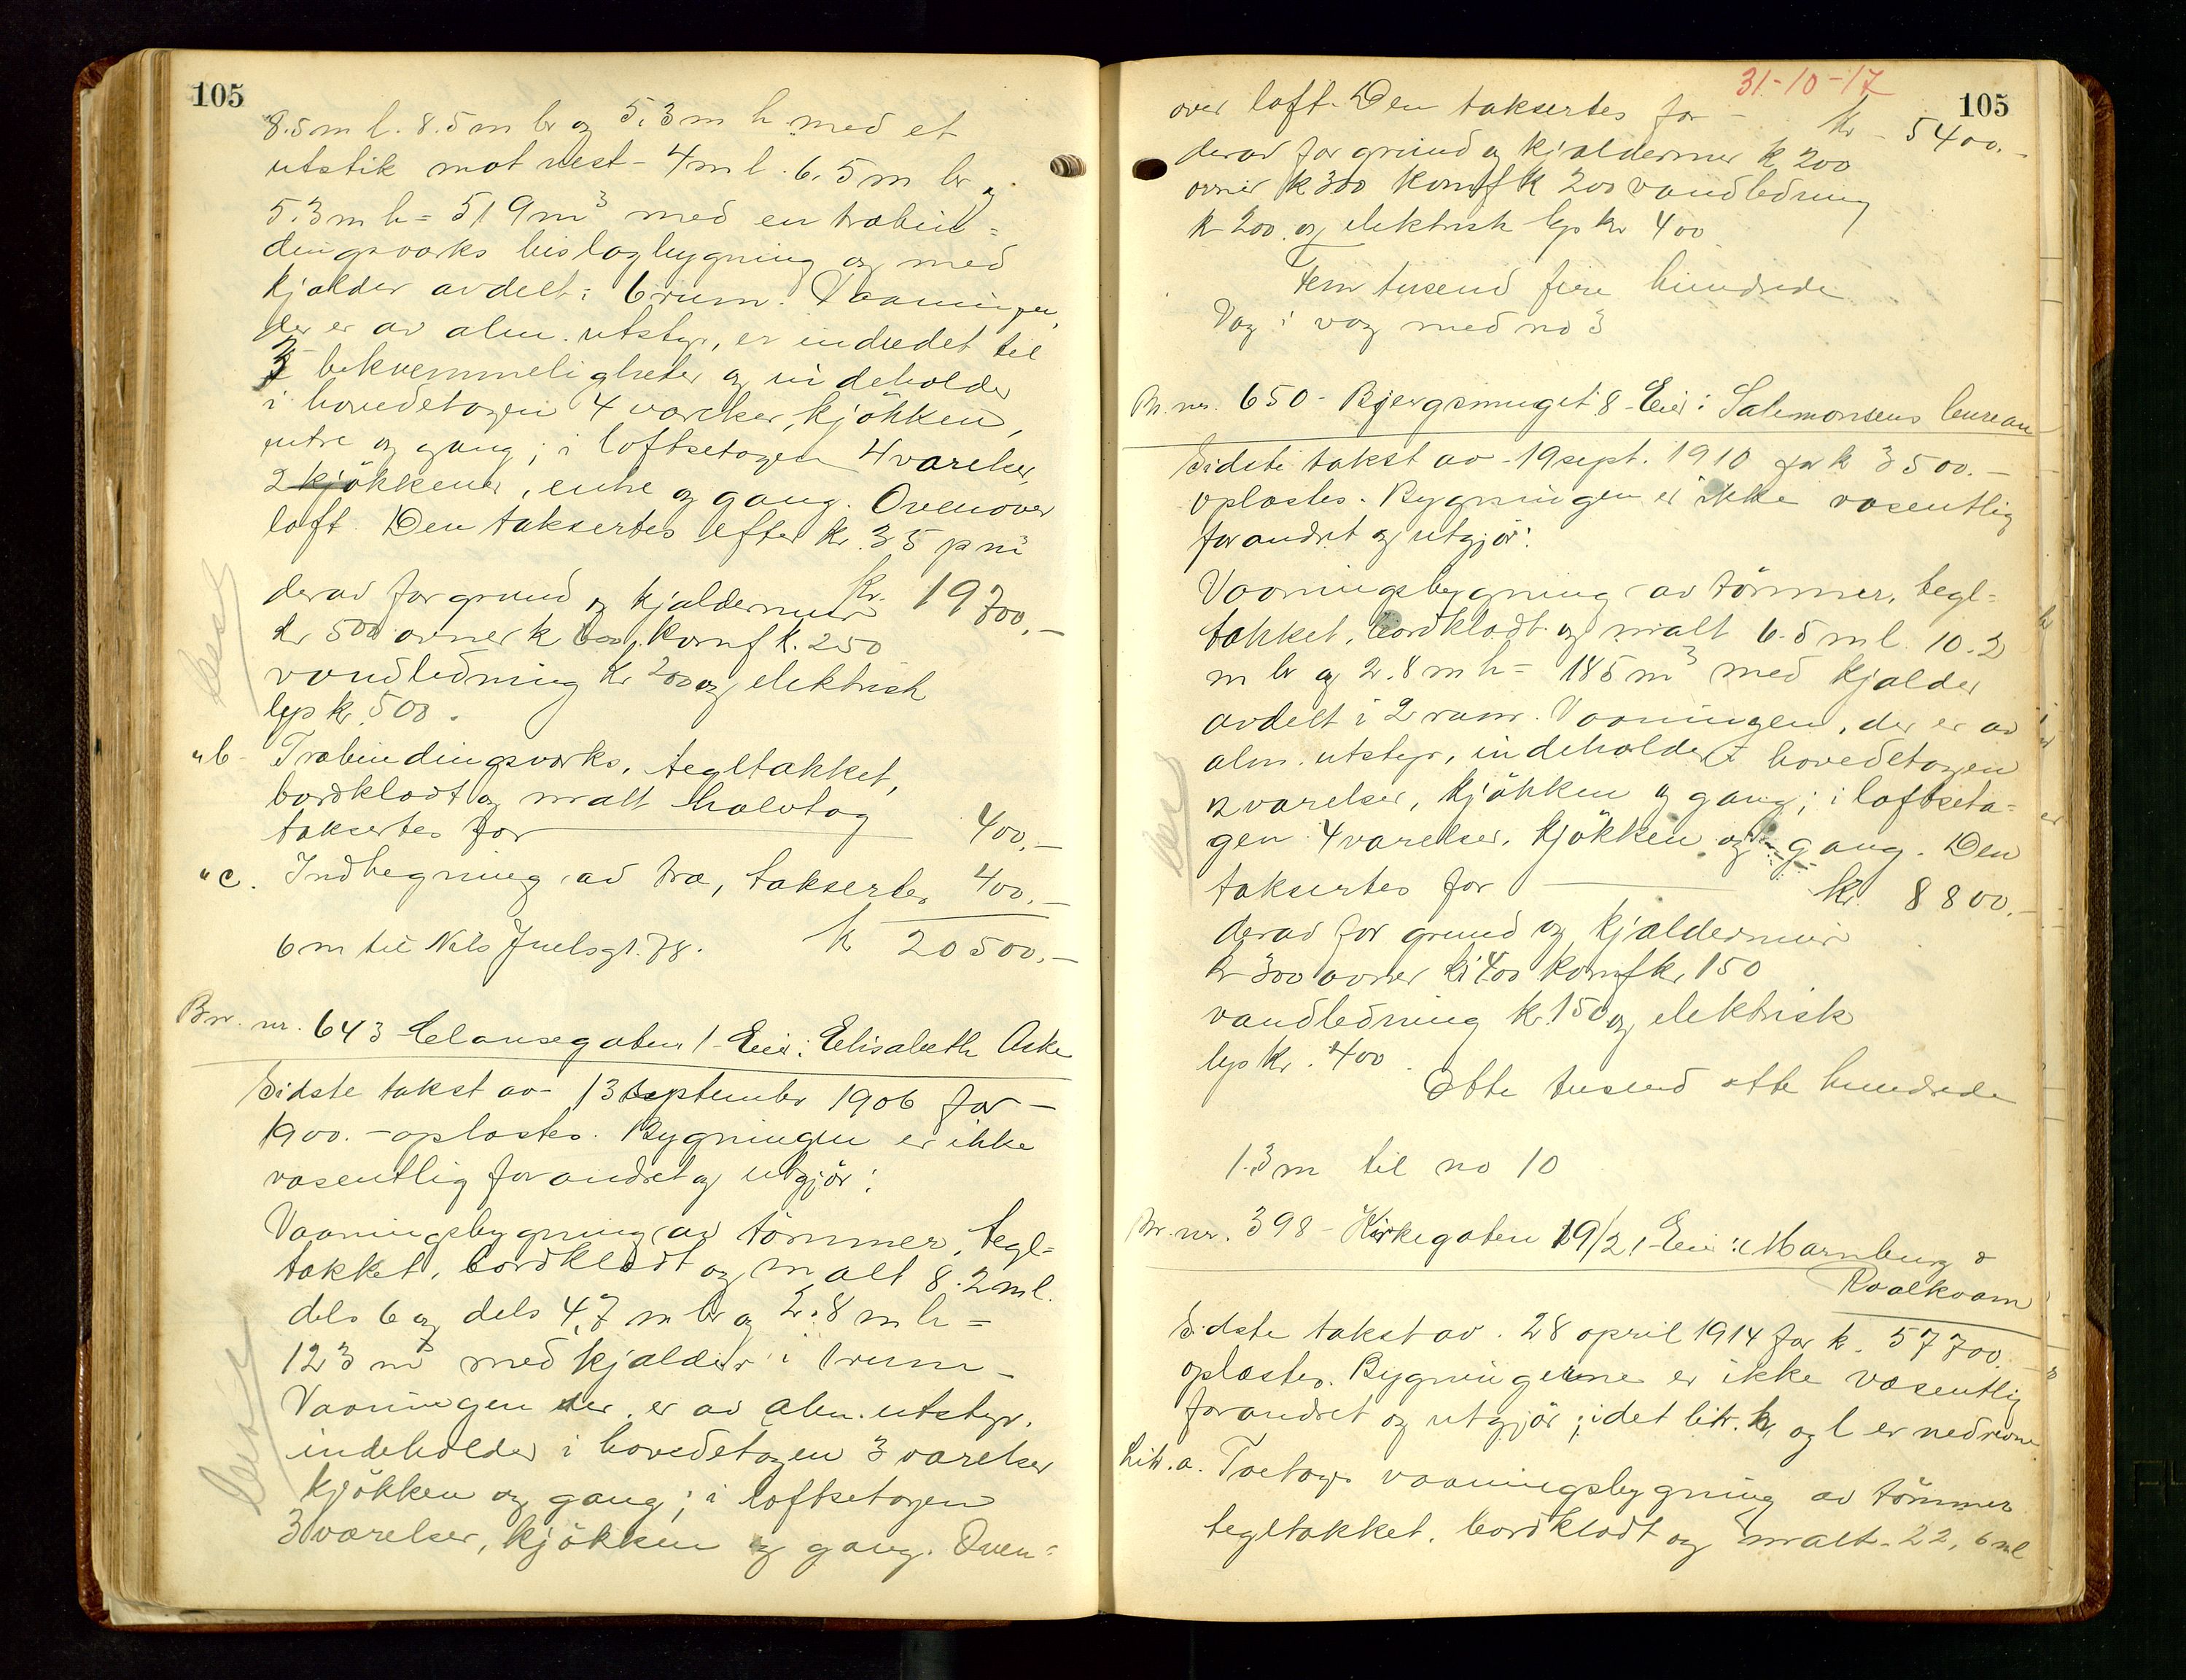 105
8.5 m l. 8.5 m br og 5.3 m h med et
utstik mot vest - 4 m l. 6.5 m br og
5.3 m h = 519 m³ med en træbin=
dingsverks bislagbygning og med
kjælder avdelt i 6 rum. Vaaningen,
der er av alm. utstyr, er indredet til
3 bekvemmeligheter og indeholder
i hovedetagen 4 værelser, kjökken,
entre og gang; i loftsetagen 4 værelser,
2 kjökkener, entre og gang. Ovenover
loft. Den taksertes efter kr. 35 p m³
kr. 19700.-
derav for grund og kjældermur
kr 500 ovner k komf k. 250
vandledning kr 200 og elektrisk
lys kr. 500.
" b - Træbindingsverks, tegltækket,
bordklædt og malt halvtag
taksertes for 400.-
" c. Indhegning av træ, taksertes 400.-
6 m til Nils Juelsgt. 78. k 20500.-
Br. nr. 643 Clausegaten 1 - Eier: Elisabeth Aske
Sidste takst av 13 september 1906 for -
1900.- oplæstes. Bygningen er ikke
væsentlig forandret og utgjör:
Vaaningsbygning av tömmer, tegl=
tækket, bordklædt og malt 8.2 m l.
dels 6 og dels 4,7 m br og 2.8 m h =
123 m³ med kjælder i 1 rum -
Vaaningen der er av alm. utstyr,
indeholder i hovedetagen 3 værelser
kjökken og gang; i loftsetagen
3 værelser, kjökken og gang. Oven=
31-10-17
105
over loft. Den taksertes for - kr - 5400.-
derav for grund og kjældermur k 200
ovner k 300 komf k 200 vandledning
k 200. og elektrisk lys kr 400
Fem tusend fire hundrede
Væg i væg med no 3
Br. nr. 650 - Bjergsmuget 8 - Eier: Salomonsens bureau
Sidste takst av 19 sept. 1910 for k 3500.-
oplæstes. Bygningen er ikke væsentlig
forandret og utgjör:
Vaaningsbygning av tömmer, tegl=
tækket, bordklædt og malt 6.5 m l. 10.2
m br og 2.8 m h = 185 m³ med kjælder
avdelt i 2 rum. Vaaningen, der er av
alm. utstyr, indeholder i hovedetagen
2 værelser, kjökken og gang; i loftseta=
gen 4 værelser, kjökken og gang. Den
taksertes for kr. 8800.-
derav for grund og kjældermur
kr 300 ovner kr 400 komf kr. 150
vandledning kr. 150 og elektrisk
lys kr. 400
Otte tusend otte hundrede
1.3 m til no 10
Br. nr. 398 - Kirkegaten 19/21 - Eier: Marnburg &
Roalkvam
Sidste takst av 28 april 1914 for k. 57700.-
oplæstes. Bygningerne er ikke væsentlig
forandret og utgjör; idet litr. k og l er nedrevne
Litr. a. Toetages vaaningsbygning av tömmer
tegltækket, bordklædt og malt - 22,6 m l